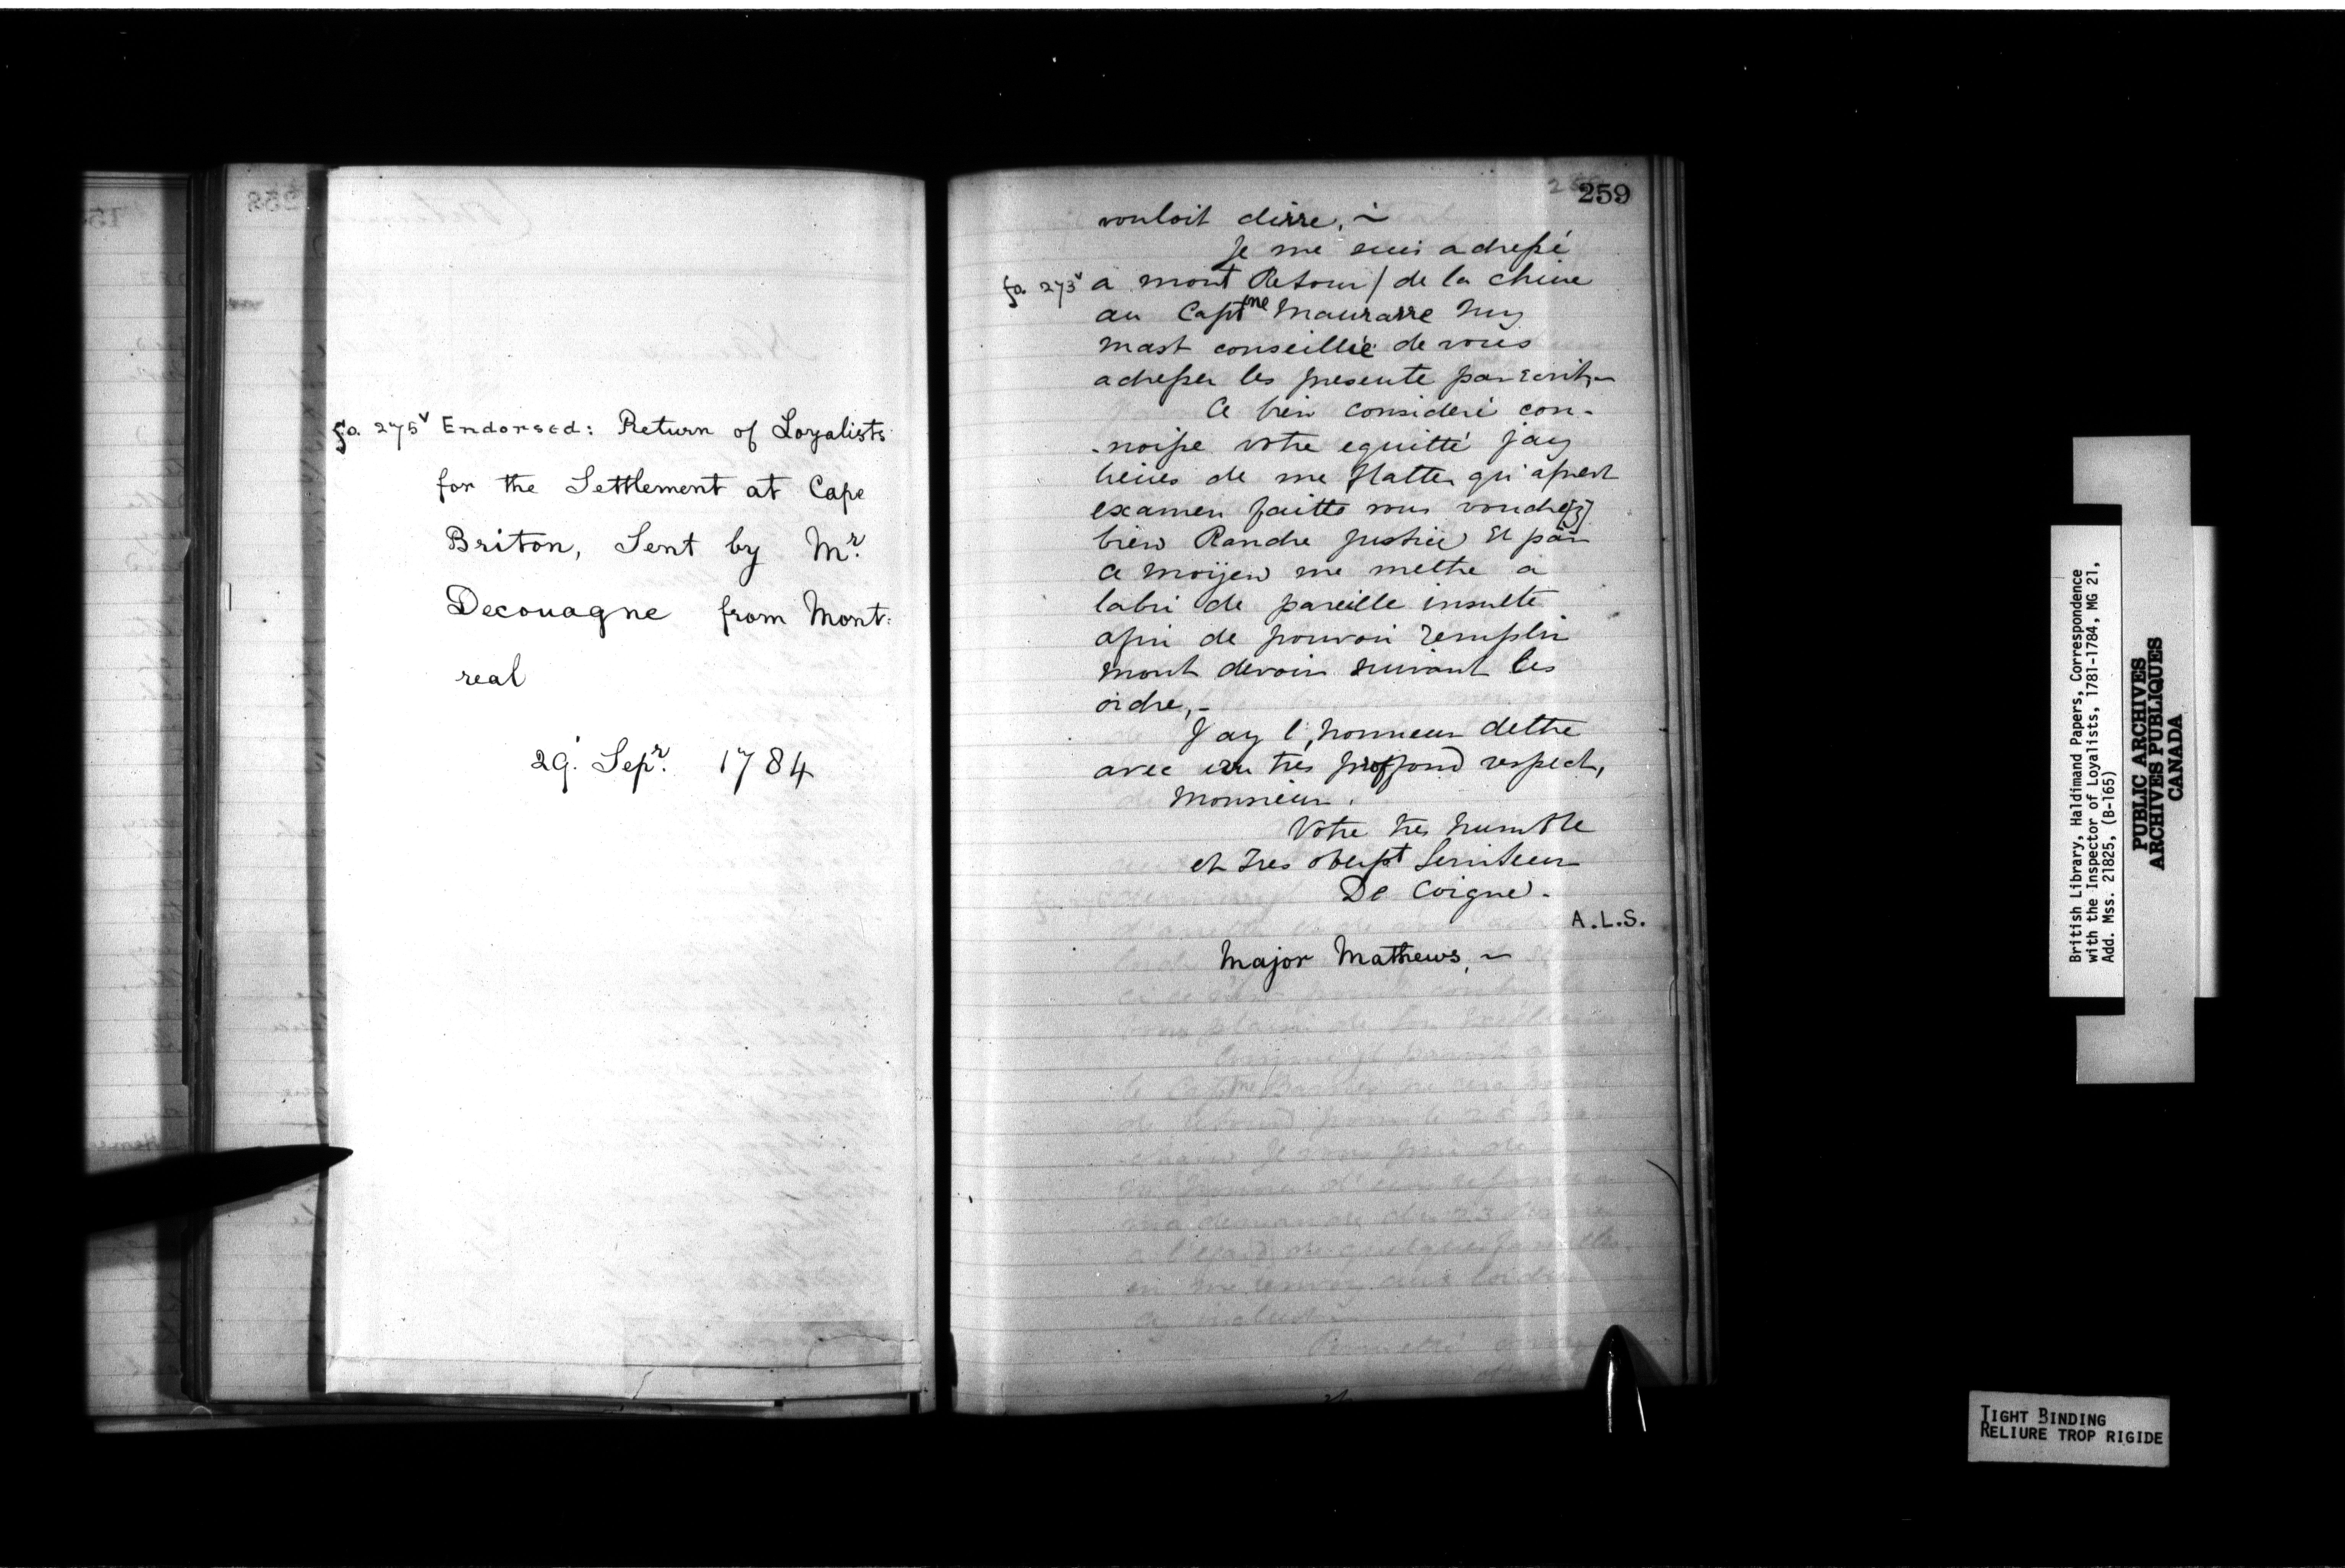 fo. 275v Endorsed: Return of Loyalists
for the Settlement at Cape
Briton, Sent by Mr.
Decouagne from Mont-
real
29. Sepr. 1784
259
vouloit dirre, ~
Je me suis adressé
fo. 273v a mont Retour / de la chine
au Captne Maurarre
mast conseillié de vous
adresser les presente par Ecrit, ~
Ce bien consideré con-
-noisse votre equitté jay
lieues de me flatter qu'aprest
examen faitte vous voudre[z]
bien Randre justice Et par
ce moÿen me mettre a
labri de pareille insulte
afin de pouvoir remplir
mont devoir suivant les
ordre, -
Jay l'honneur dettre
avec un tres proffond respect,
Monsieur.
Votre tres humble
et tres obeisst Serviteur
De Coigne.
A.L.S.
Major Mathews, ~
British Library, Haldimand Papers, Correspondence
with the Inspector of Loyalists, 1781-1784, MG 21,
Add. Mss. 21825, (B-165)
PUBLIC ARCHIVES
ARCHIVES PUBLIQUES
CANADA
TIGHT BINDING
RELIURE TROP RIGIDE